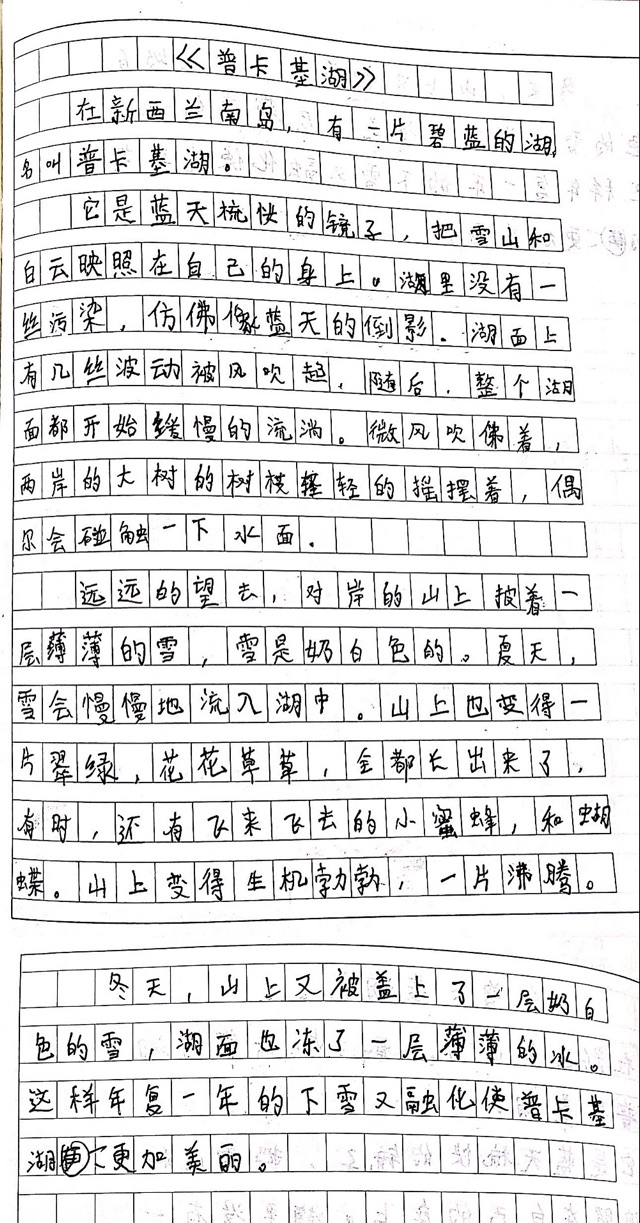 《普卡基湖》
在新西兰南岛，有一片碧蓝的湖，
名叫普卡基湖。
它是蓝天梳妆的镜子，把雪山和
白云映照在自己的身上。湖里没有一
丝污染，仿佛像蓝天的倒影。湖面上
有几丝波动被风吹起，随后，整个湖
面都开始缓慢的流淌。微风吹佛着，
两岸的大树的树枝轻轻的摇摆着，偶
尔会碰触一下水面。
远远的望去，对岸的山上披着一
层薄薄的雪，雪是奶白色的。夏天，
雪会慢慢地流入湖中。山上也变得一
片翠绿，花花草草，全都长出来了，
有时，还有飞来飞去的小蜜蜂，和蝴
蝶。山上变得生机勃勃，一片沸腾。
冬天，山上又被盖上了一层奶白
色的雪，湖面也冻了一层薄薄的冰。
这样年复一年的下雪又融化使普卡基
湖更加美丽。